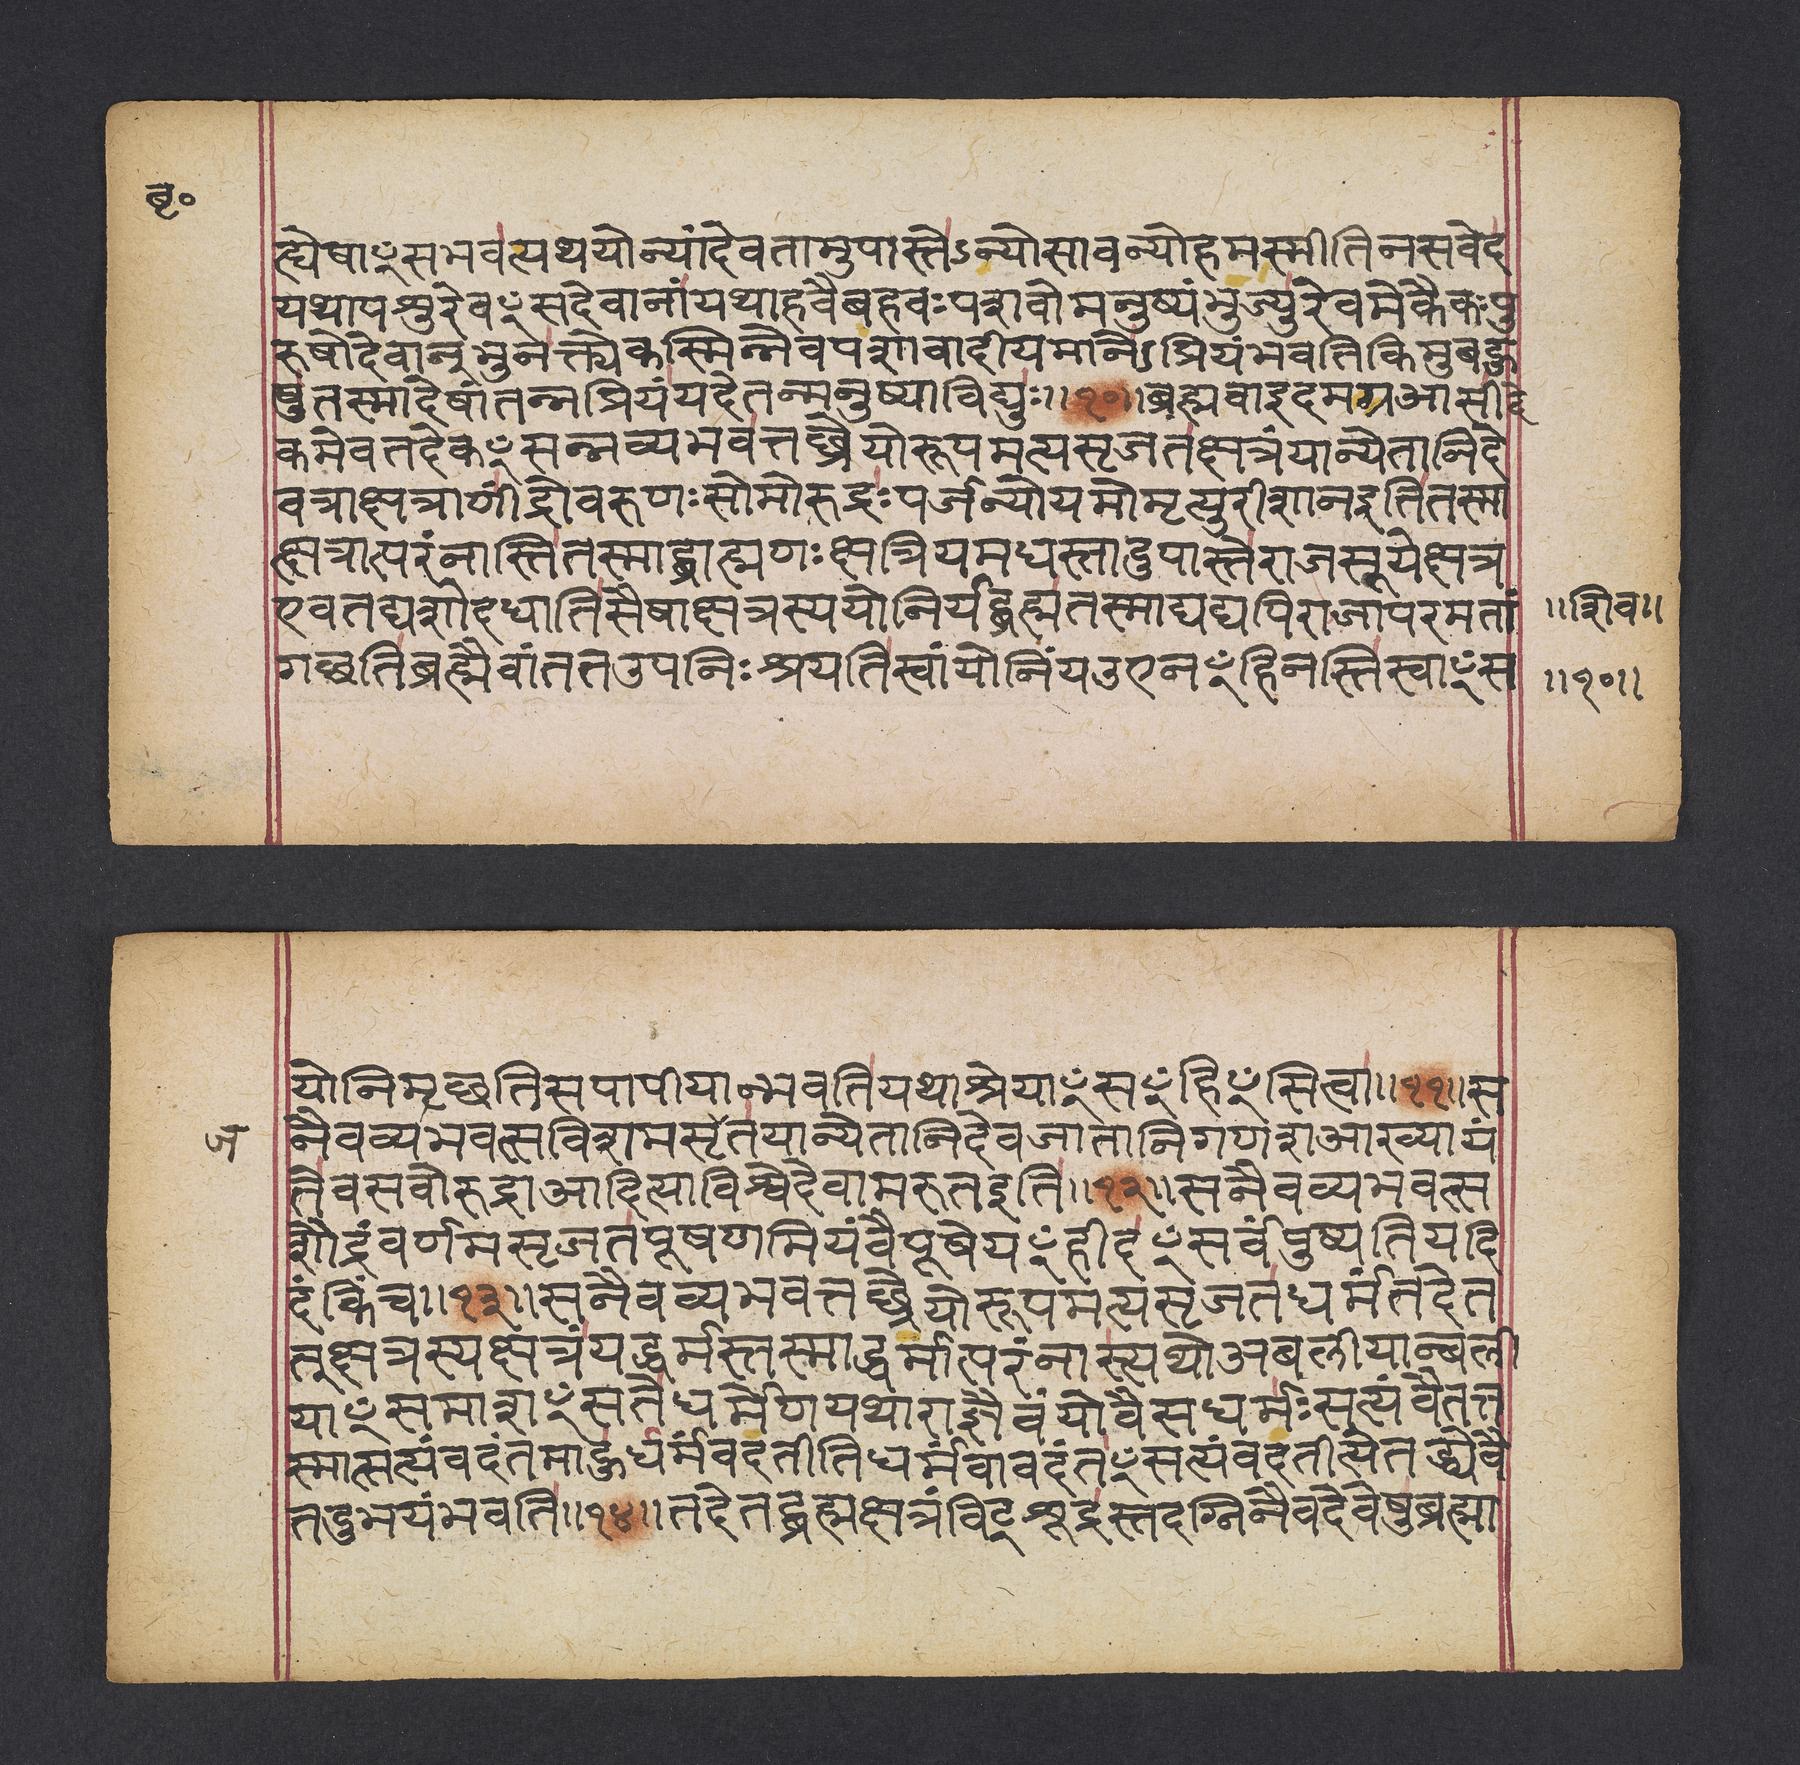 बृ०
त्ह्येषाꣳसभवत्यथयोन्यांदेवतामुपास्तेऽन्योसावन्योहमस्मीतिनसवेद
यथापशुरेवꣳसदेवानांयथाहवैबहवःपशवोमनुष्यंभुंज्युरेवमेकैकःपु
रुषोदेवान्भुनक्त्येकस्मिन्नेवपशावादीयमानेऽप्रियंभवतिकिमुबहु
षुतस्मादेषांतन्नप्रियंयदेतन्मनुष्याविद्युः॥१०॥ब्रह्मवाइदमग्रआसीदे
कमेवतदेकꣳसन्नव्यभवत्तछ्रेयोरूपमत्यसृजतक्षत्रंयान्येतानिदे
वत्राक्षत्राणींद्रोवरुणःसोमोरुद्रःपर्जन्योयमोमृत्युरीशानइतितस्मा
त्क्षत्रात्परंनास्तितस्माद्ब्राह्मणःक्षत्रियमधस्तादुपास्तेराजसूयेक्षत्र
एवतद्यशोदधातिसैषाक्षत्रस्ययोनिर्यद्ब्रह्मतस्माद्यद्यपिराजापरमतां
॥शिव॥
गछतिब्रह्मैवांततउपनिःश्रयतिस्वांयोनिंयउएनꣳहिनस्तिस्वाꣳस
॥१०॥
योनिमृछतिसपापीयान्भवतियथाश्रेयाꣳसꣳहिꣳसित्वा॥११॥स
ज
नैवव्यभवत्सविशमसृतयान्येतानिदेवजातानिगणशआख्यायं
तेवसवोरुद्राआदित्याविश्वेदेवामरुतइति॥१२॥सनैवव्यभवत्स
शौद्रंवर्णमसृजतपूषणमियंवैपूषेयꣳहीदꣳसर्वंपुष्यतियदि
दंकिंच॥१३॥सनैवव्यभवत्तछ्रेयोरूपमत्यसृजतधर्मंतदेत
त्क्षत्रस्यक्षत्रंयद्धर्मस्तस्माद्धर्मात्परंनास्त्यथोअबलीयान्बली
याꣳसमाशꣳसतेधर्मेणयथाराज्ञैवंयोवैसधर्मःसत्यंवैतत्त
स्मात्सत्यंवदंतमाहुर्धर्मंवदतीतिधर्मंवावदंतꣳसत्यंवदतीत्येतद्ध्येवै
तदुभयंभवति॥१४॥तदेतद्ब्रह्मक्षत्रंविट्शूद्रस्तदग्निनैवदेवेषुब्रह्मा